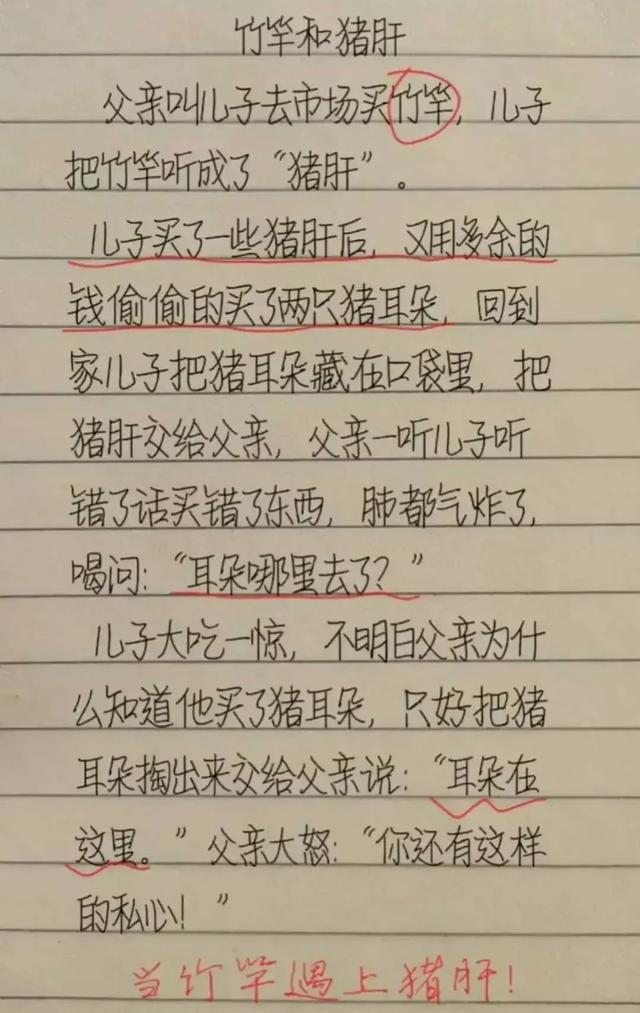 竹竿和猪肝
父亲叫儿子去市场买竹竿，儿子
把竹竿听成了“猪肝”。
儿子买了一些猪肝后，又用多余的
钱偷偷的买了两只猪耳朵，回到
家儿子把猪耳朵藏在口袋里，把
猪肝交给父亲，父亲一听儿子听
错了话买错了东西，肺都气炸了，
喝问：“耳朵哪里去了？”
儿子大吃一惊，不明白父亲为什
么知道他买了猪耳朵，只好把猪
耳朵掏出来交给父亲说：“耳朵在
这里。”父亲大怒：“你还有这样
的私心！”
当竹竿遇上猪肝！